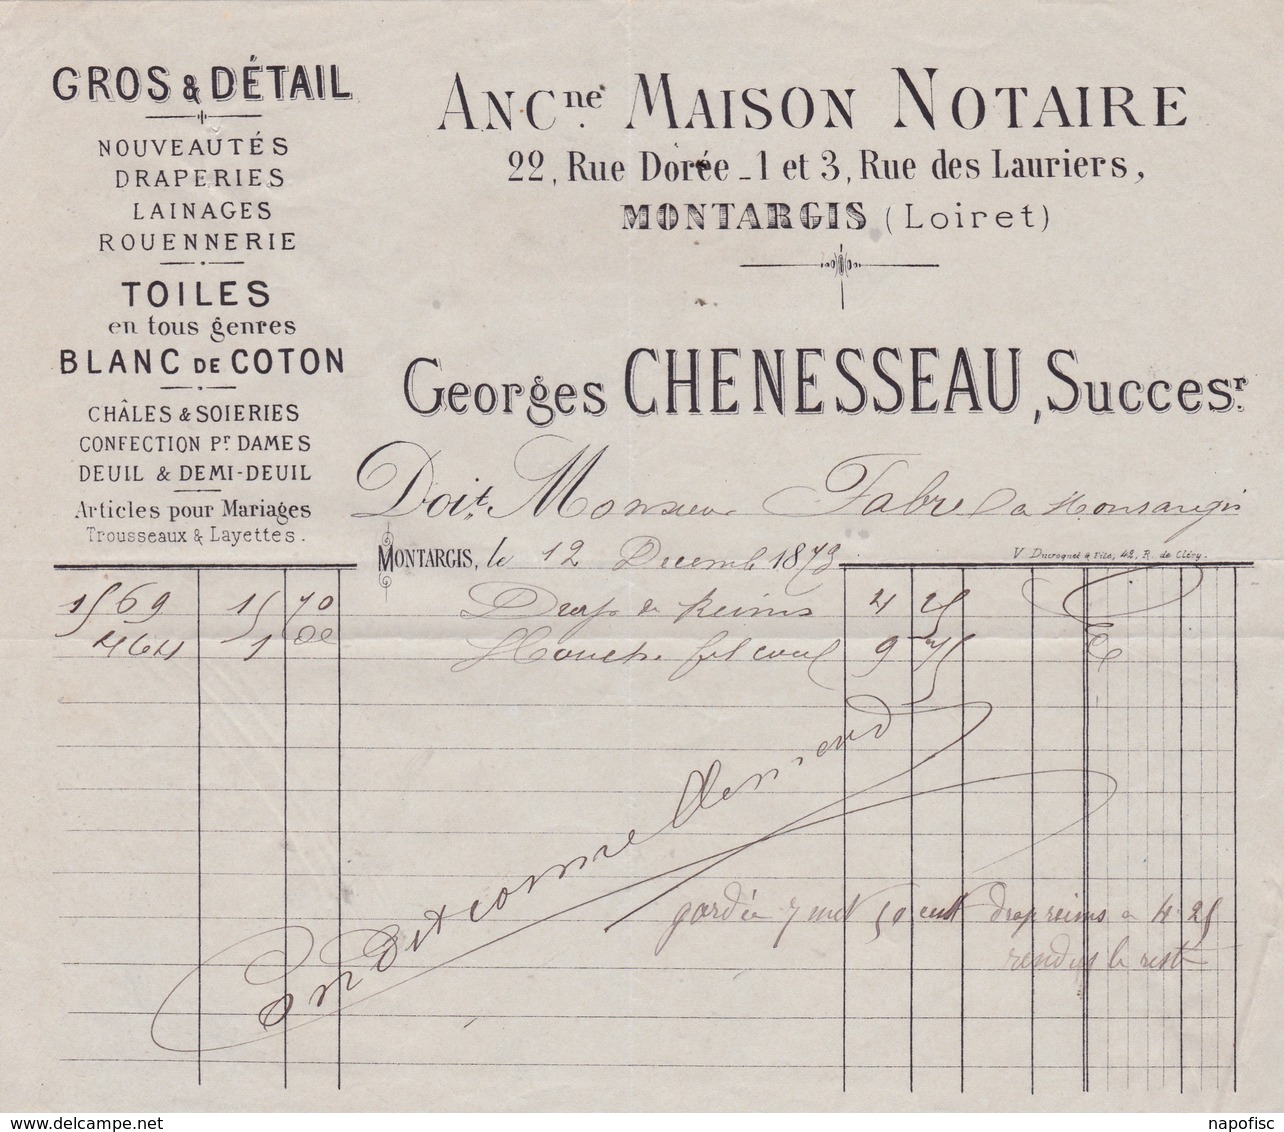 GROS & DÉTAIL
NOUVEAUTÉS
DRAPERIES
LAINAGES
ROUENNERIE
TOILES
en tous genres
BLANC DE COTON
CHÂLES & SOIERIES
CONFECTION Pr. DAMES
DEUIL & DEMI-DEUIL
Articles pour Mariages
Trousseaux & Layettes.
ANCne. MAISON NOTAIRE
22, Rue Dorée _ 1 et 3, Rue des Lauriers,
MONTARGIS (Loiret)
Georges CHENESSEAU, Succesr.
Doit Monsieur Fabre
MONTARGIS, le 12 Decembre 1873
V. Ducroquet & Fils, 42, R. de Cléry.
1569 15 70 Drap de Reims 4 25
464 1 9 75
gardée 7 met 50 cent drap reims a 4 25
rendus le reste
www.delcampe.net
napofisc